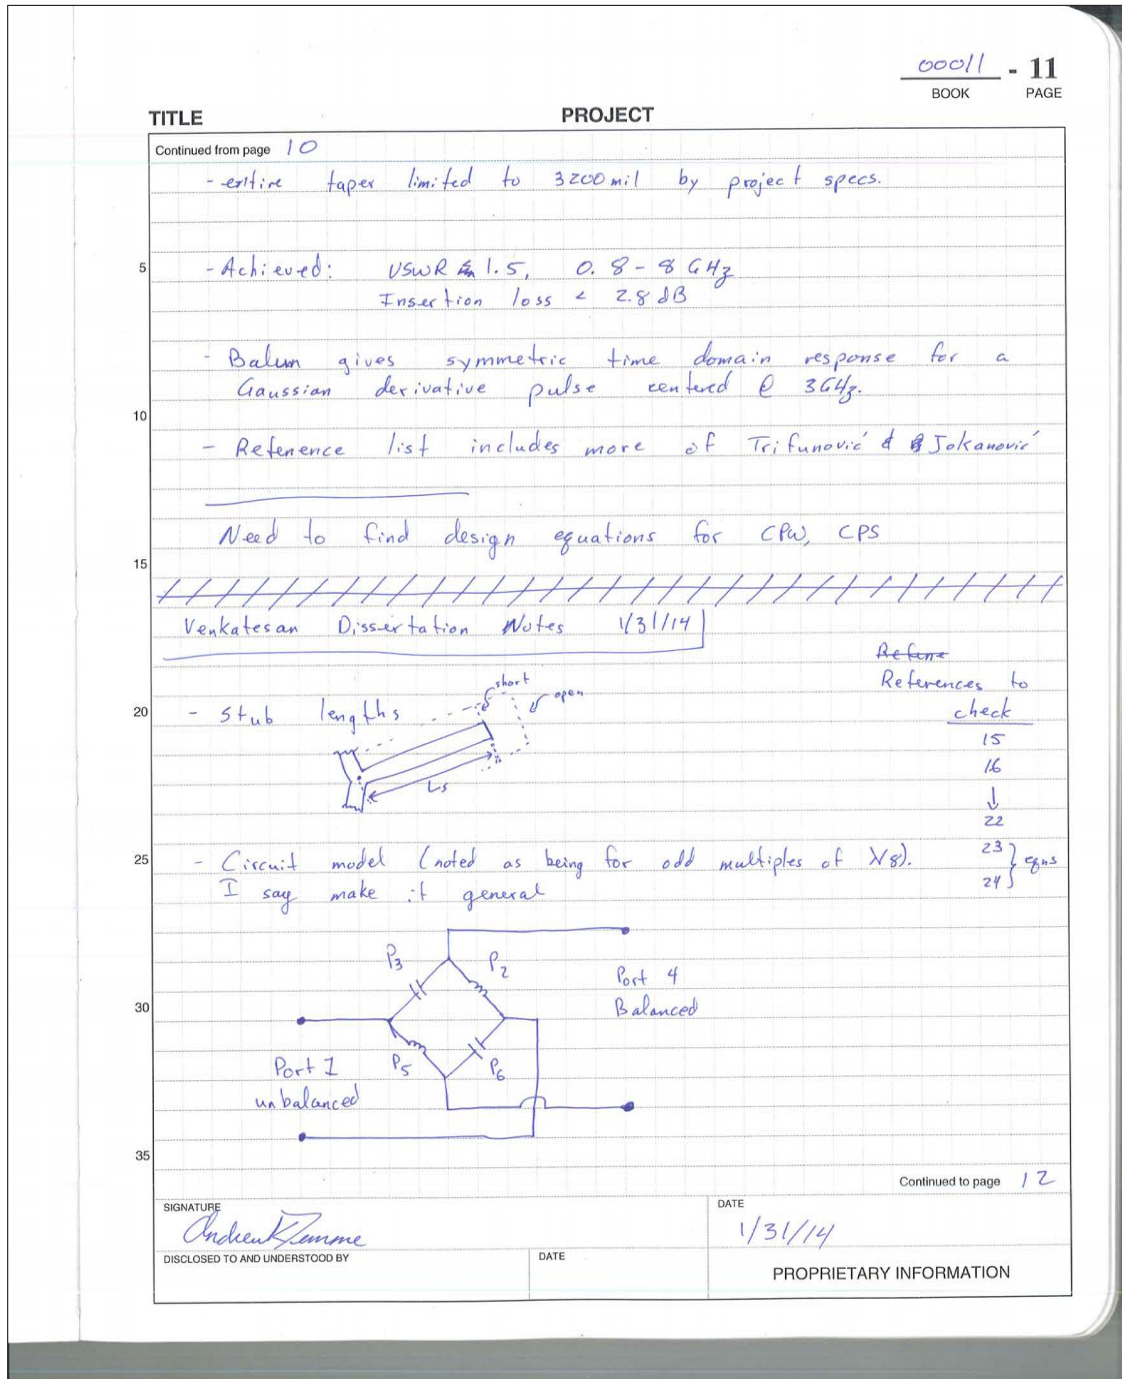 00011 - 11
BOOK PAGE
TITLE PROJECT
Continued from page 10
- entire taper limited to 3200mil by project specs.
5
- Achieved: VSWR 1.5, 0.8 - 8 GHz
Insertion loss < 2.8 dB
- Balun gives symmetric time domain response for a
Gaussian derivative pulse centered @ 3GHz.
10
- Reference list includes more of Trifunović & Jokanović
Need to find design equations for CPW, CPS
15
Venkatesan Dissertation Notes 1/31/14
Refere
References to
check
15
16
↓
22
23
24 } eqns
20
- Stub lengths
short
open
Ls
25
- Circuit model (noted as being for odd multiples of λ/8).
I say make it general
P3
P2
Port 4
Balanced
30
Port 1
unbalanced
P5
P6
35
Continued to page 12
SIGNATURE
Andrew Temme
DATE
1/31/14
DISCLOSED TO AND UNDERSTOOD BY
DATE
PROPRIETARY INFORMATION